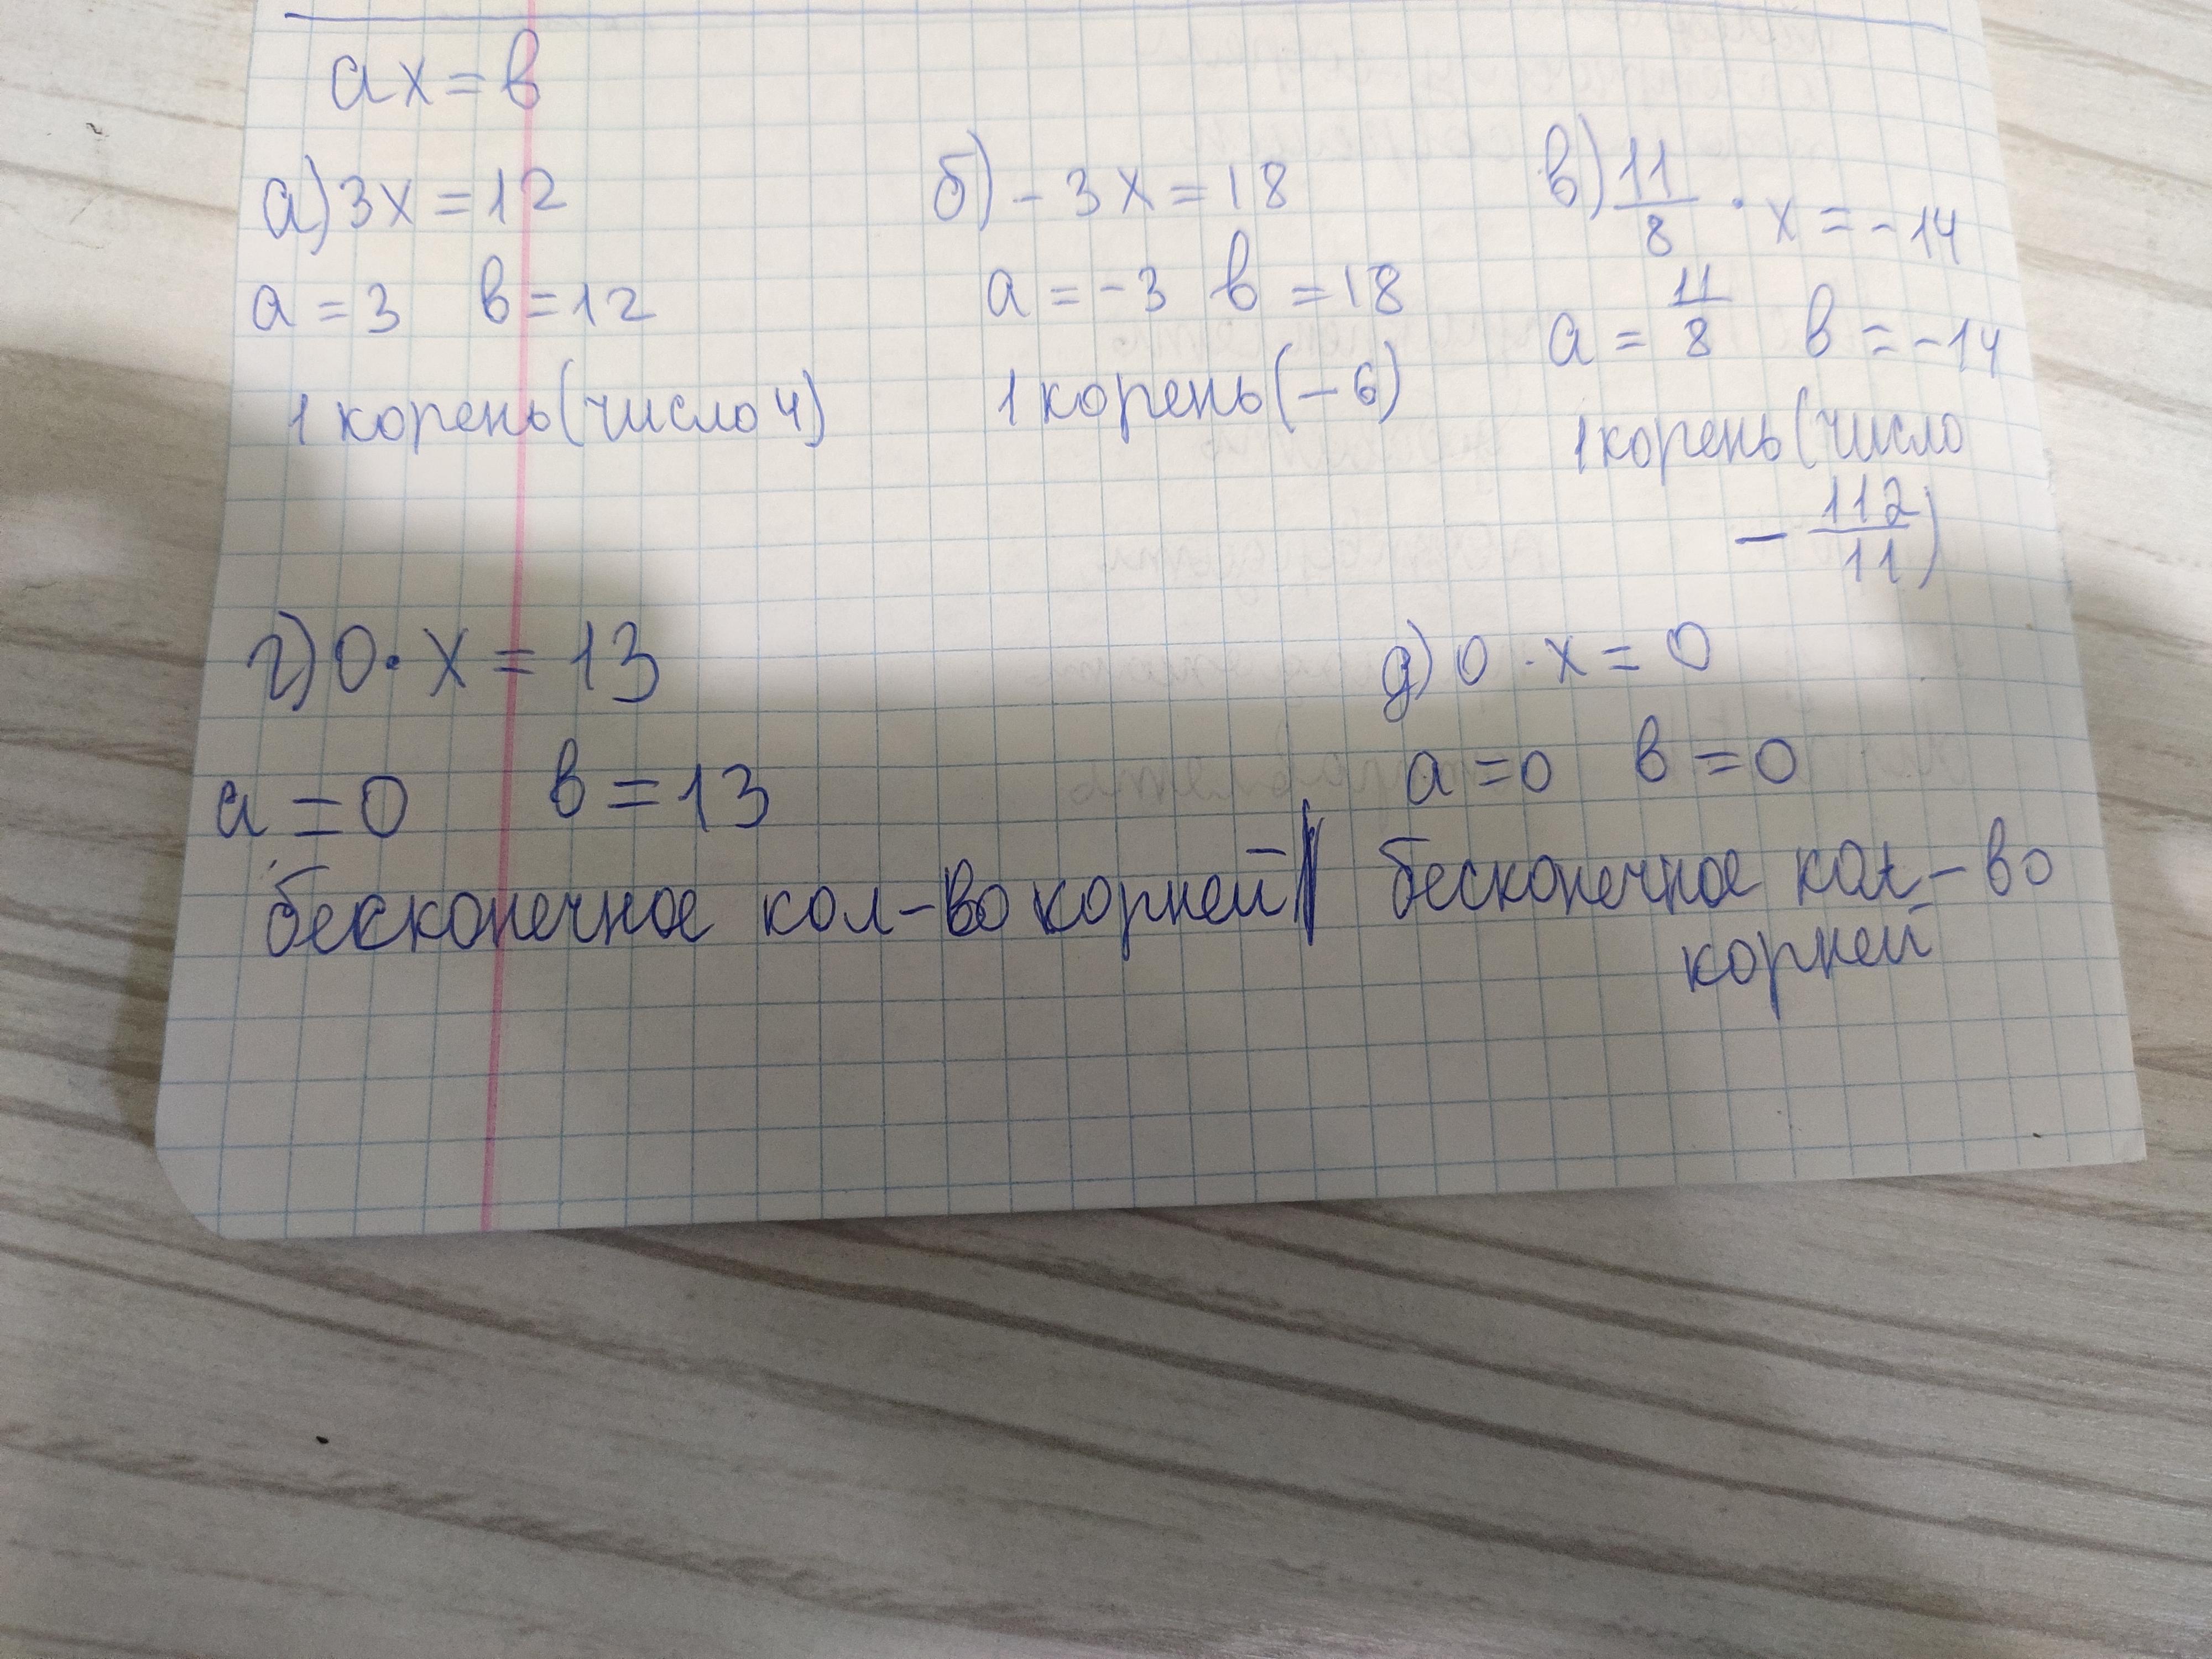 ax = в
а) 3x = 12
a = 3 в = 12
1 корень (число 4)
б) - 3x = 18
a = -3 в = 18
1 корень (-6)
в) 11/8 · x = -14
a = 11/8 в = -14
1 корень (число
- 112/11)
г) 0 · x = 13
a = 0 в = 13
бесконечное кол-во корней
д) 0 · x = 0
a = 0 в = 0
бесконечное кол-во
корней